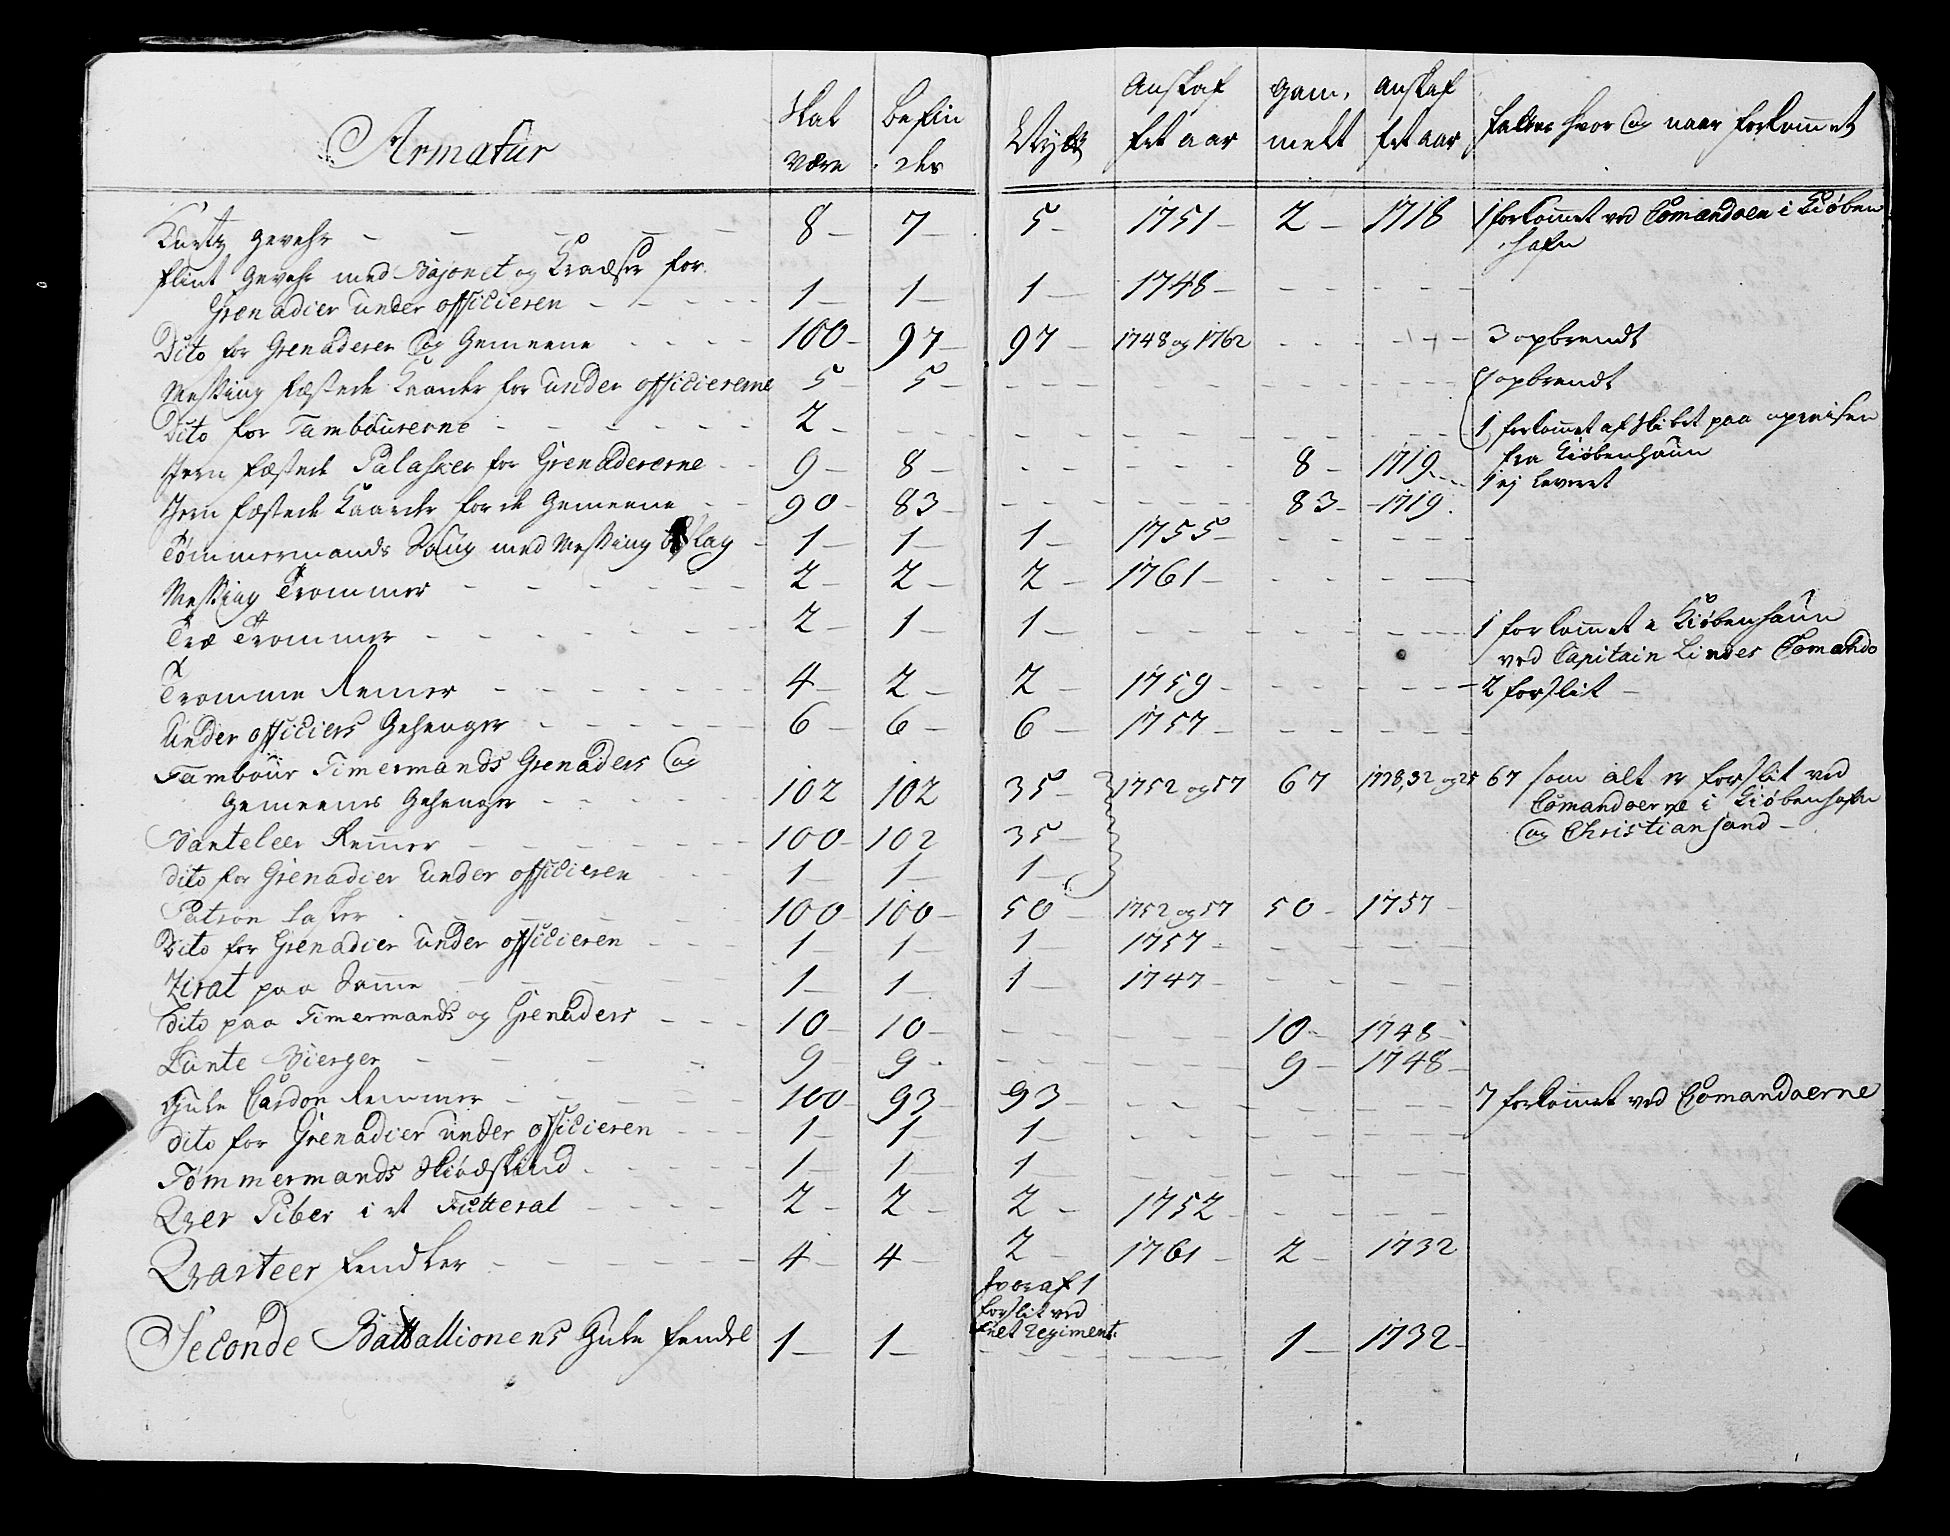 Armatur | Skal Være | Befindes | Nytt | Anskaffet aar | Gammelt | Anskaffet aar | Fattes hvor og naar forkommet
Kurtz Gevehr | 8 | 7 | 5 | 1751 | 2 | 1718 | 1 forkommet ved Comandoen i Kiøben
hafn
Flint Gevehr med Bajonet og Kradser for
Grenadier under officieren | 1 | 1 | 1 | 1748
Dito for Grenaderer og Gemeene | 100 | 97 | 97 | 1748 og 1762 | 3 opbrendt
Messing fæstede Kaarder for under officiererne | 5 | 5
1 opbrendt
Dito for Tambourerne | 2 | 1 forkommet af Skibet paa opreisen
fra Kiøbenhaun
Jern fæstede Palasker for Grenadererne | 9 | 8 | 8 | 1719 | 1 ej leveret
Jern fæstede Kaarder for de Gemeene | 90 | 83 | 83 | 1719
Tømmermands Saug med Messing Beslag | 1 | 1 | 1 | 1755
Messing Trommer | 2 | 2 | 2 | 1761
Træ Trommer | 2 | 1 | 1 | 1 forkommet i Kiøbenhaun
ved Capitain Lindes Comando
Tromme Remer | 4 | 2 | 2 | 1759 | 2 forslit
Under officiers Gehenger | 6 | 6 | 6 | 1757
Tambour Timermands Grenaders og
Gemeenes Gehenger | 102 | 102 | 35 | 1752 og 57 | 67 | 1718, 32 og 25 | 67 som alt er forslit ved
Comandoerne i Kiøbenhafn
og Christiansand
Banteleer Remer | 100 | 102 | 35
dito for Grenadier under officieren | 1 | 1 | 1
Patron Tasker | 100 | 100 | 50 | 1752 og 57 | 50 | 1757
Dito for Grenadier under officieren | 1 | 1 | 1 | 1757
Zirat paa Samme | 1 | 1 | 1 | 1747
Dito paa Timermands og Grenaders | 10 | 10 | 10 | 1748
Lunte Bierger | 9 | 9 | 9 | 1748
Gule Cardon Remmer | 100 | 93 | 93 | 7 forkommet ved Comandoerne
dito for Grenadier under officieren | 1 | 1 | 1
Tømmermands Skiødskind | 1 | 1 | 1
Qver Piber i et Futteral | 2 | 2 | 2 | 1752
Qvarteer Fendker | 4 | 4 | 2 | 1761 | 2 | 1732
hvoraf 1
forslit ved
Regiment.
Seconde Battallionens Gule Fendke | 1 | 1 | 1 | 1732